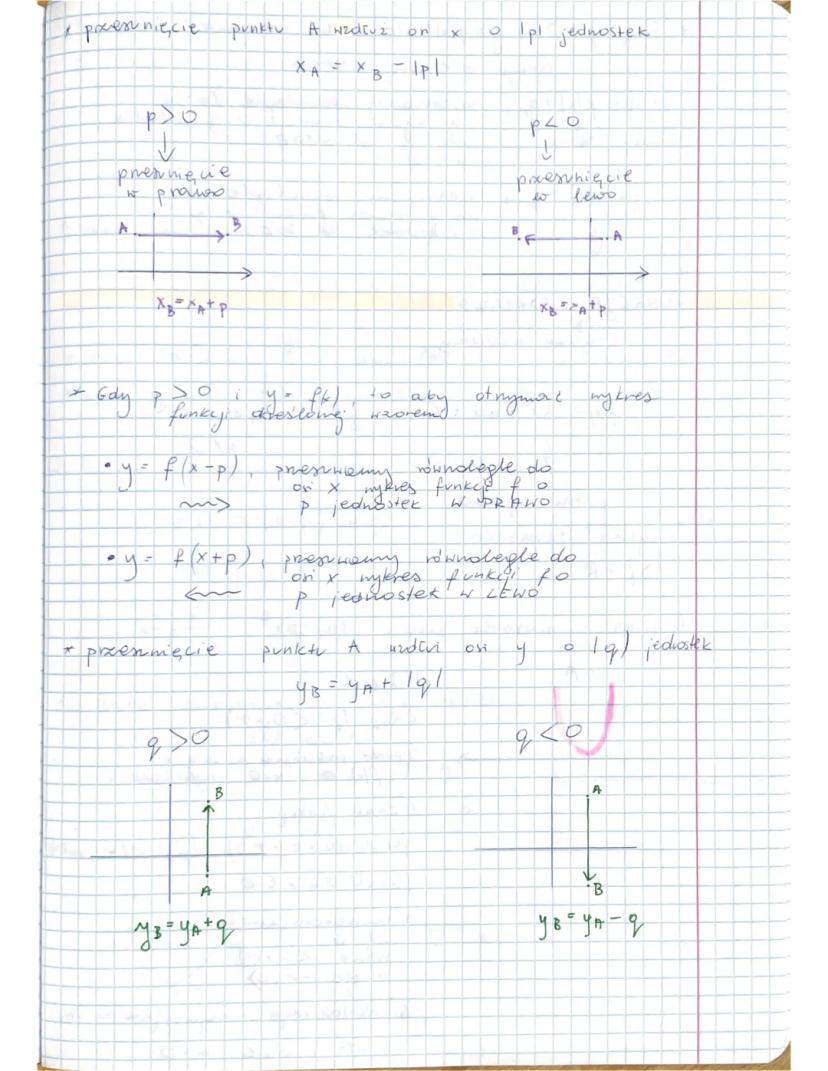 * przesunięcie punktu A wzdłuż osi x o |p| jednostek
x_A = x_B - |p|
p > 0
p < 0
↓
↓
przesunięcie
w prawo
przesunięcie
w lewo
A B
B A
x_B = x_A + p
x_B = x_A + p
* Gdy p > 0 i y = f(x), to aby otrzymać wykres
funkcji określonej wzorem:
• y = f(x-p), przesuwamy równolegle do
osi x wykres funkcji f o
p jednostek W PRAWO
• y = f(x+p), przesuwamy równolegle do
osi x wykres funkcji f o
p jednostek W LEWO
* przesunięcie punktu A wzdłuż osi y o |q| jednostek
y_B = y_A + |q|
q > 0
q < 0
B
A
A
B
y_B = y_A + q
y_B = y_A - q